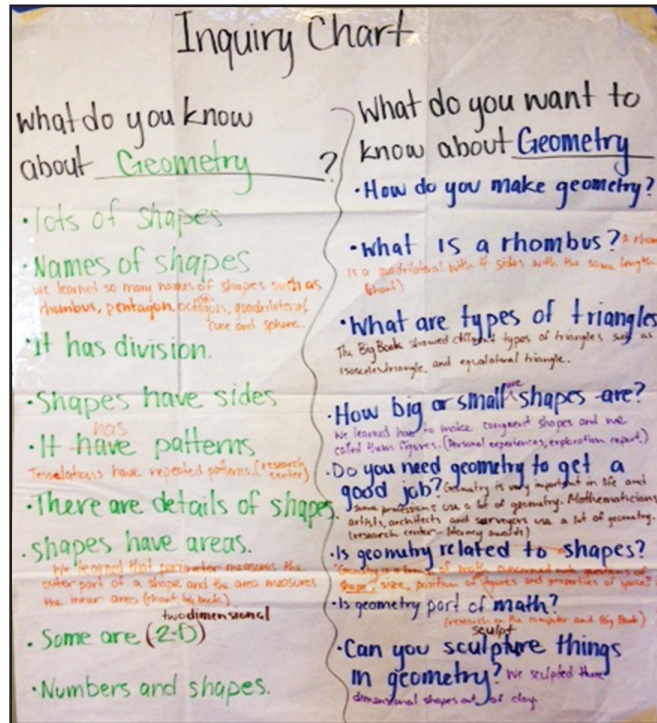 Inquiry Chart
What do you know
about Geometry ?
• lots of shapes
• Names of shapes
We learned so many names of shapes such as
rhombus, pentagon, octagon, quadrilateral
cone and sphere.
• It has division.
• Shapes have sides
has
• It have patterns
Tessellations have repeated patterns. (research
center)
• There are details of shapes.
• shapes have areas.
We learned that perimeter measures the
outer part of a shape and the area measures
the inner area (chart, big book)
two dimensional
• Some are (2-D)
• Numbers and shapes.
What do you want to
know about Geometry
• How do you make geometry?
• What is a rhombus? A
is a quadrilateral with 4 sides with the same length
(chant)
• What are types of triangles
The Big Book showed different types of triangles such as
isosceles triangle, and equilateral triangle.
are
• How big or small shapes are?
We learned how to make congruent shapes and we
called them figures. (Personal experiences, exploration report)
• Do you need geometry to get a
good job? Geometry is very important in life and
some professions use a lot of geometry. Mathematicians,
artists, architects and surveyors use a lot of geometry.
(research center - literacy awards)
• Is geometry related to shapes?
Geometry is a of math concerned with questions of
shape, size, position of figures and properties of space.
• Is geometry part of math?
(research on the computer and Big Book)
sculpt
• Can you sculpture things
in geometry? We sculpted three
dimensional shapes out of clay.